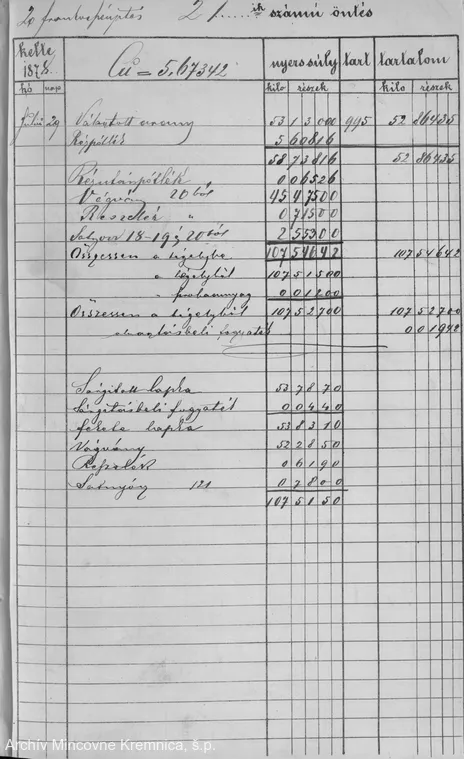 21 ik számú öntés
kelte 1878. nyers súly tart tartalom
hó nap Cu = 5,67342 kilo részek kilo részek
Julius 29 Választott arany 53 13000 995 52 86435
Rézpótlás 5 60816
58 73816 52 86435
Rézutánpótlék 0 06526
Vágvány 20 ból 45 47500
Reszelék " 0 71500
20 ból 2 55300
Összesen a tégelybe 107 54642 107 54642
" tégelyből 107 51500
" 0 01200
Összesen a tégelyből 107 52700 107 52700
olvasztásbeli fogyaték 0 01942
lapka 53 7870
fogyaték 0 0440
fekete lapka 53 8310
Vágvány 52 2850
Reszelék 0 6190
121 0 7800
107 5150
Archív Mincovne Kremnica, š.p.